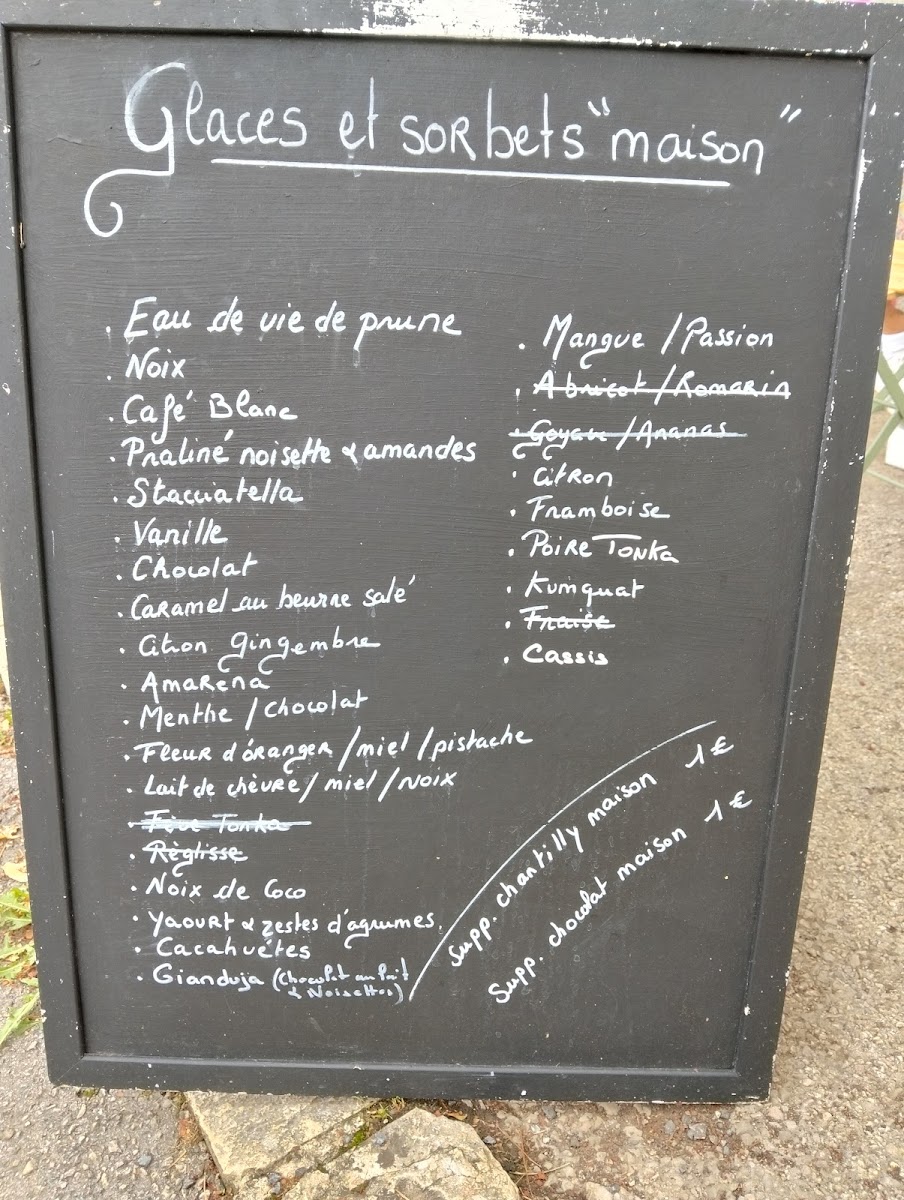 Glaces et sorbets "maison"
. Eau de vie de prune
. Noix
. Café Blanc
. Praliné noisette & amandes
. Stacciatella
. Vanille
. Chocolat
. Caramel au beurre salé
. Citron gingembre
. Amarena
. Menthe / Chocolat
. Fleur d'oranger / miel / pistache
. Lait de chèvre / miel / Noix
. Fève Tonka
. Règlisse
. Noix de Coco
. Yaourt & zestes d'agrumes
. Cacahuétes
. Gianduja (Chocolat au lait
& Noisettes)
. Mangue / Passion
. Abricot / Romarin
. Goyave / Ananas
. Citron
. Framboise
. Poire Tonka
. Kumquat
. Fraise
. Cassis
Supp. chantilly maison 1€
Supp. chocolat maison 1€